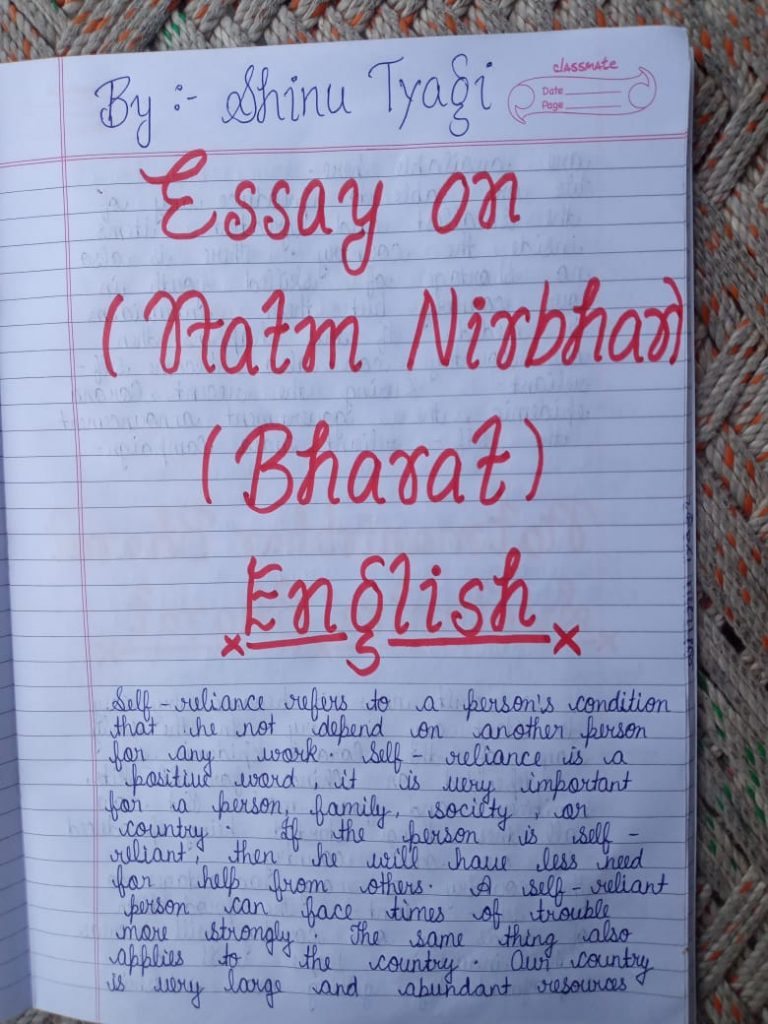 By :- Shinu Tyagi
classmate
Date
Page
Essay on
(Aatm Nirbhar)
(Bharat)
English
Self-reliance refers to a person's condition
that he not depend on another person
for any work. Self-reliance is a
positive word, it is very important
for a person, family, society, or
country. If the person is self-
reliant, then he will have less need
for help from others. A self-reliant
person can face times of trouble
more strongly. The same thing also
applies to the country. Our country
is very large and abundant resources